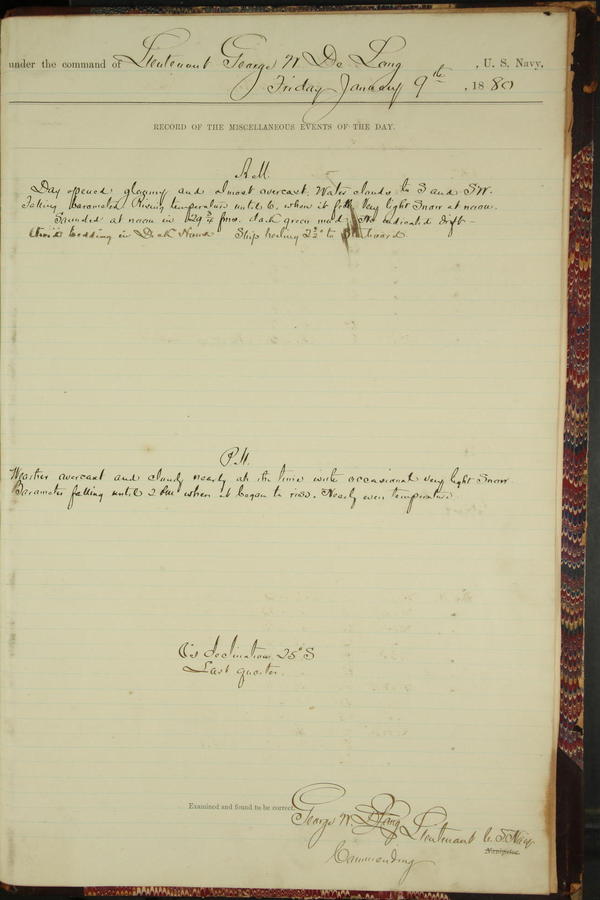 under the command of Lieutenant George W De Long, U. S. Navy,
Friday January 9th, 1880
RECORD OF THE MISCELLANEOUS EVENTS OF THE DAY.
A.M.
Day opened gloomy and almost overcast. Water clouds to S and SW.
Falling barometer. Rising temperature until 6. when it fell. Very light Snow at noon.
Sounded at noon in 29 3/4 fms. dark green mud. No indicated drift -
Aired bedding in Deck House Ship heeling 2 1/2° to Starboard
P.M.
Weather overcast and cloudy nearly all the time with occasional very light Snow
Barometer falling until 2 PM when it began to rise. Nearly even temperature.
☾'s declination 25° S
Last quarter.
Examined and found to be correct.
George W. De Long Lieutenant U. S. Navy
Navigator.
Commanding